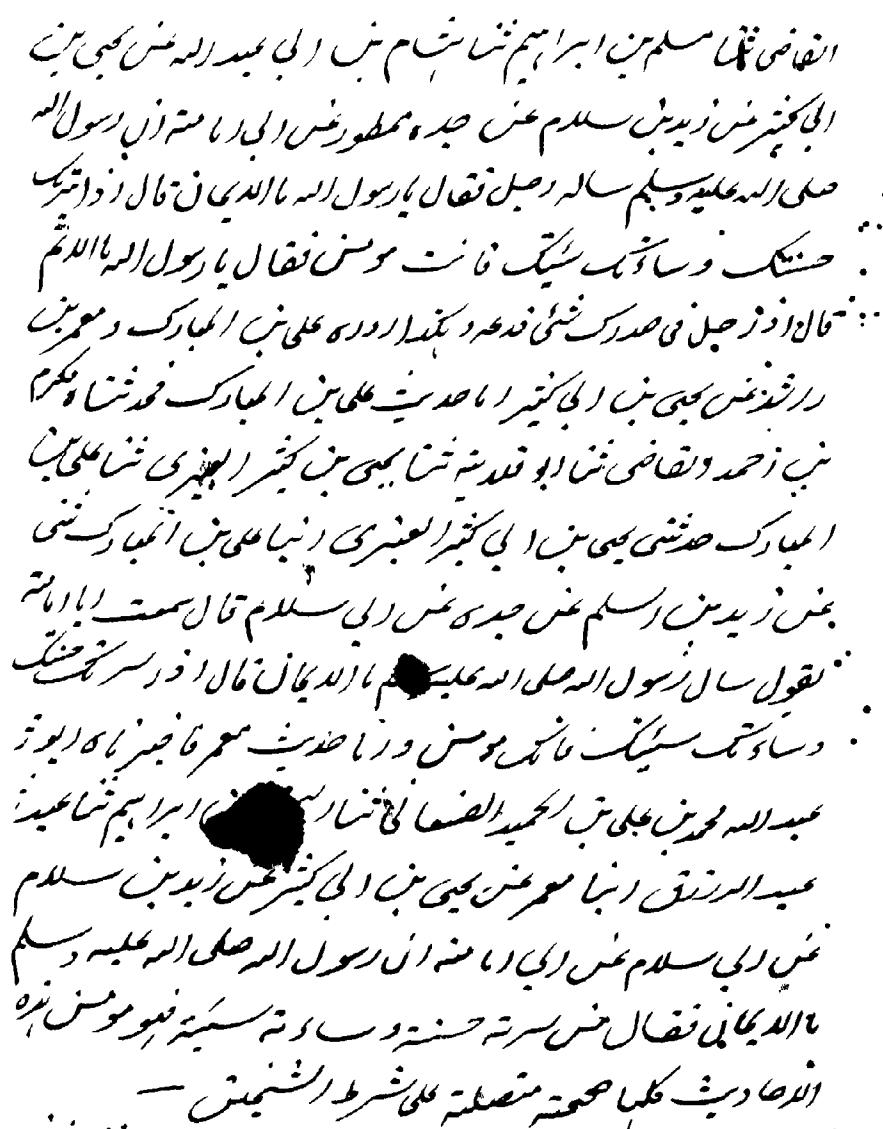 القاضى ثنا مسلم بن ابراہیم ثنا ہشام بن ابی عبد اللہ عن یحیی بن
ابی کثیر عن زید بن سلام عن جدہ ممطور عن ابی امامتہ ان رسول اللہ
صلی اللہ علیہ وسلم سالہ رجل فقال یا رسول اللہ ما الایمان قال اذا سرتک
حسنتک و ساءتک سیئتک فانت مومن فقال یا رسول اللہ ما الاثم
قال اذا حل فی صدرک شئی فدعہ و ہکذا رواہ علی بن المبارک و معمر بن
راشد عن یحیی بن ابی کثیر اما حدیث علی بن المبارک فحدثناہ مکرم
بن احمد القاضی ثنا ابو قلابتہ ثنا یحیی بن کثیر العنبری ثنا علی بن
المبارک حدثنی یحیی بن ابی کثیر العنبری انبا علی بن المبارک ثنی
عن زید بن اسلم عن جدہ عن ابی سلام قال سمعت ابا امامتہ
یقول سال رسول اللہ صلی اللہ علیہ ما الایمان قال اذا سرتک حسنتک
و ساءتک سیئتک فانک مومن و اما حدیث معمر فاخبرناہ ابو
عبد اللہ محمد بن علی بن الحمید الصنعانی ثنا بن ابراہیم ثنا عبد
عبد الرزاق انبا معمر عن یحیی بن ابی کثیر عن زید بن سلام
عن ابی سلام عن ابی امامتہ ان رسول اللہ صلی اللہ علیہ وسلم
ما الایمان فقال من سرتہ حسنتہ و ساءتہ سیئتہ فہو مومن ہذہ
الاحادیث کلہا صحیحتہ متصلتہ علی شرط الشیخین —